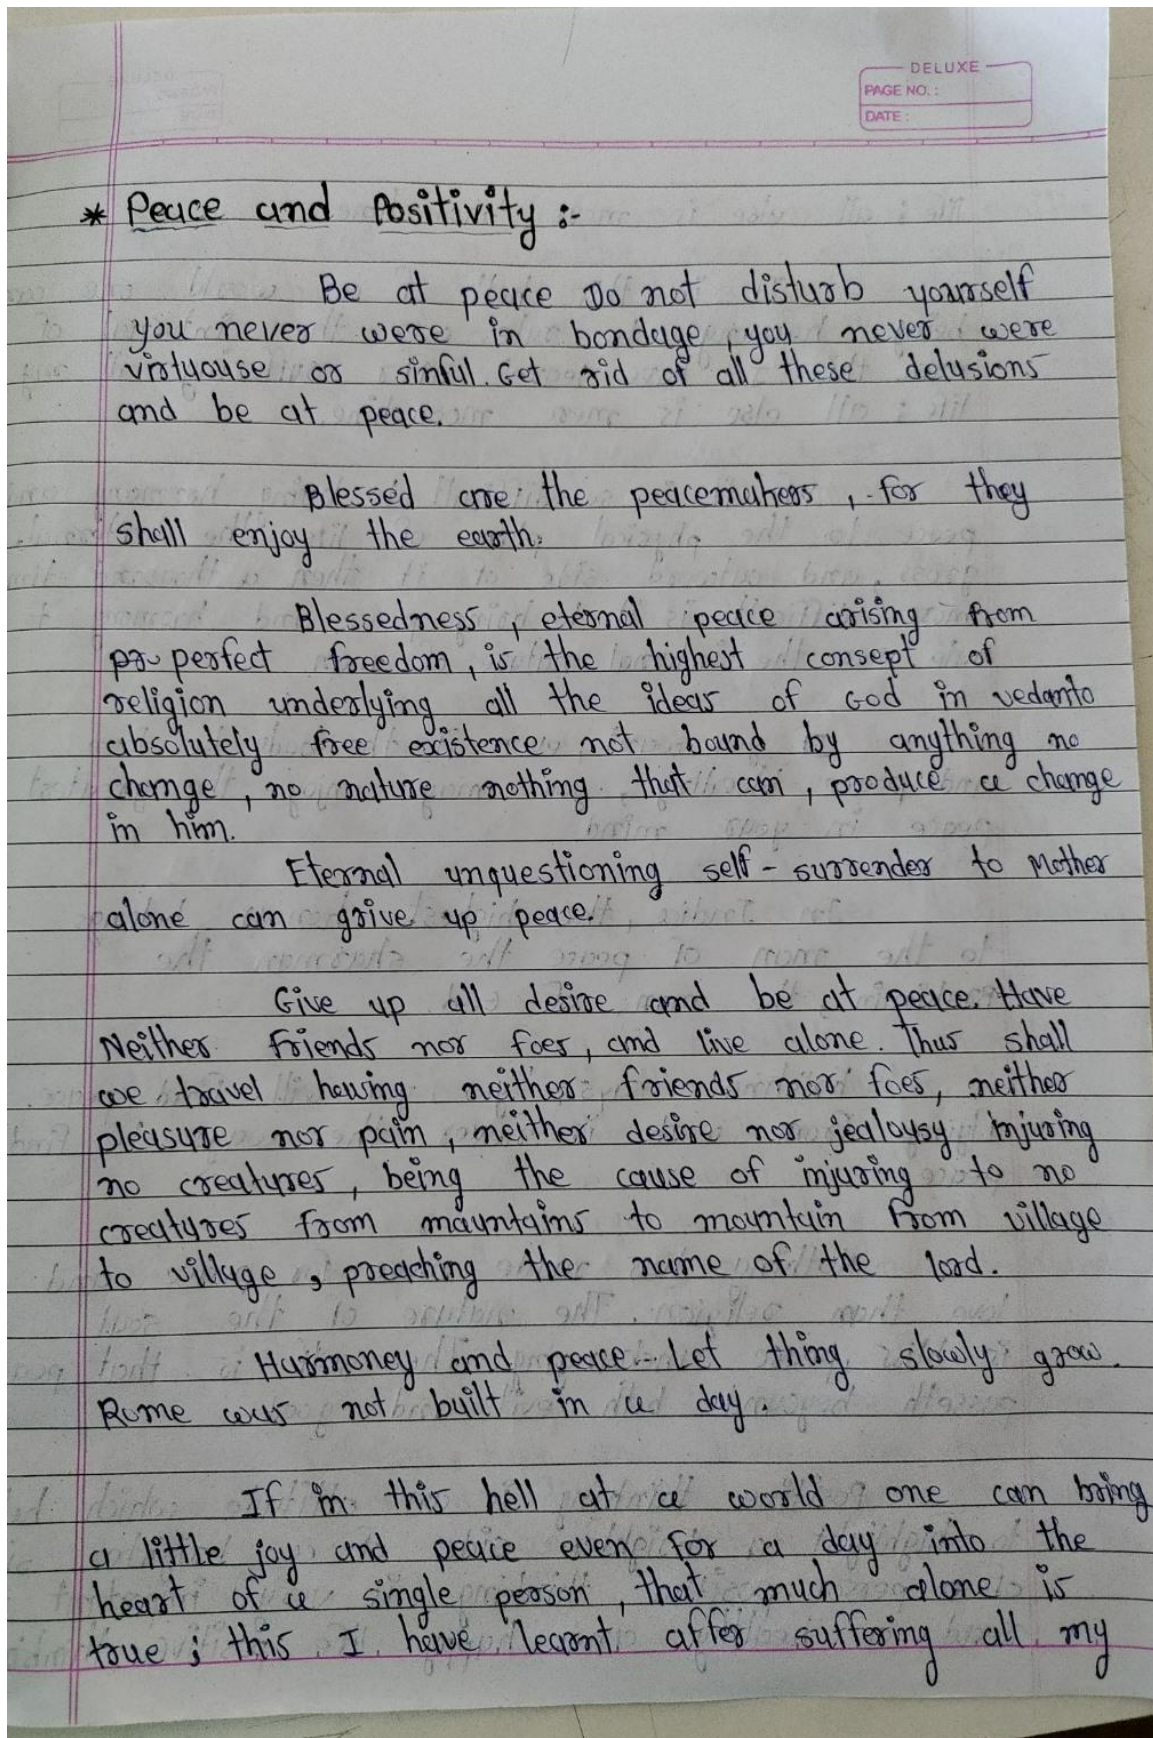 DELUXE
PAGE NO. :
DATE :
* Peace and Positivity :-
Be at peace Do not disturb yourself
you never were in bondage, you never were
virtuouse or sinful. Get rid of all these delusions
and be at peace.
Blessed are the peacemakers, for they
shall enjoy the earth.
Blessedness, eternal peace arising from
perfect freedom, is the highest consept of
religion underlying all the ideas of God in vedanto
absolutely free existence not bound by anything no
change, no nature nothing that can, produce a change
in him.
Eternal unquestioning self - surrender to Mother
alone can grive up peace.
Give up all desire and be at peace. Have
Neither friends nor foes, and live alone. Thus shall
we travel having neither friends nor foes, neither
pleasure nor pain, neither desire nor jealousy injuring
no creatures, being the cause of injuring to no
creatures from mauntains to mountain from village
to village, preaching the name of the lord.
Harmoney and peace.. Let thing slowly grow.
Rome was not built in a day.
If in this hell at a world one can bring
a little joy and peace even for a day into the
heart of a single person, that much alone is
true ; this I have learnt after suffering all my